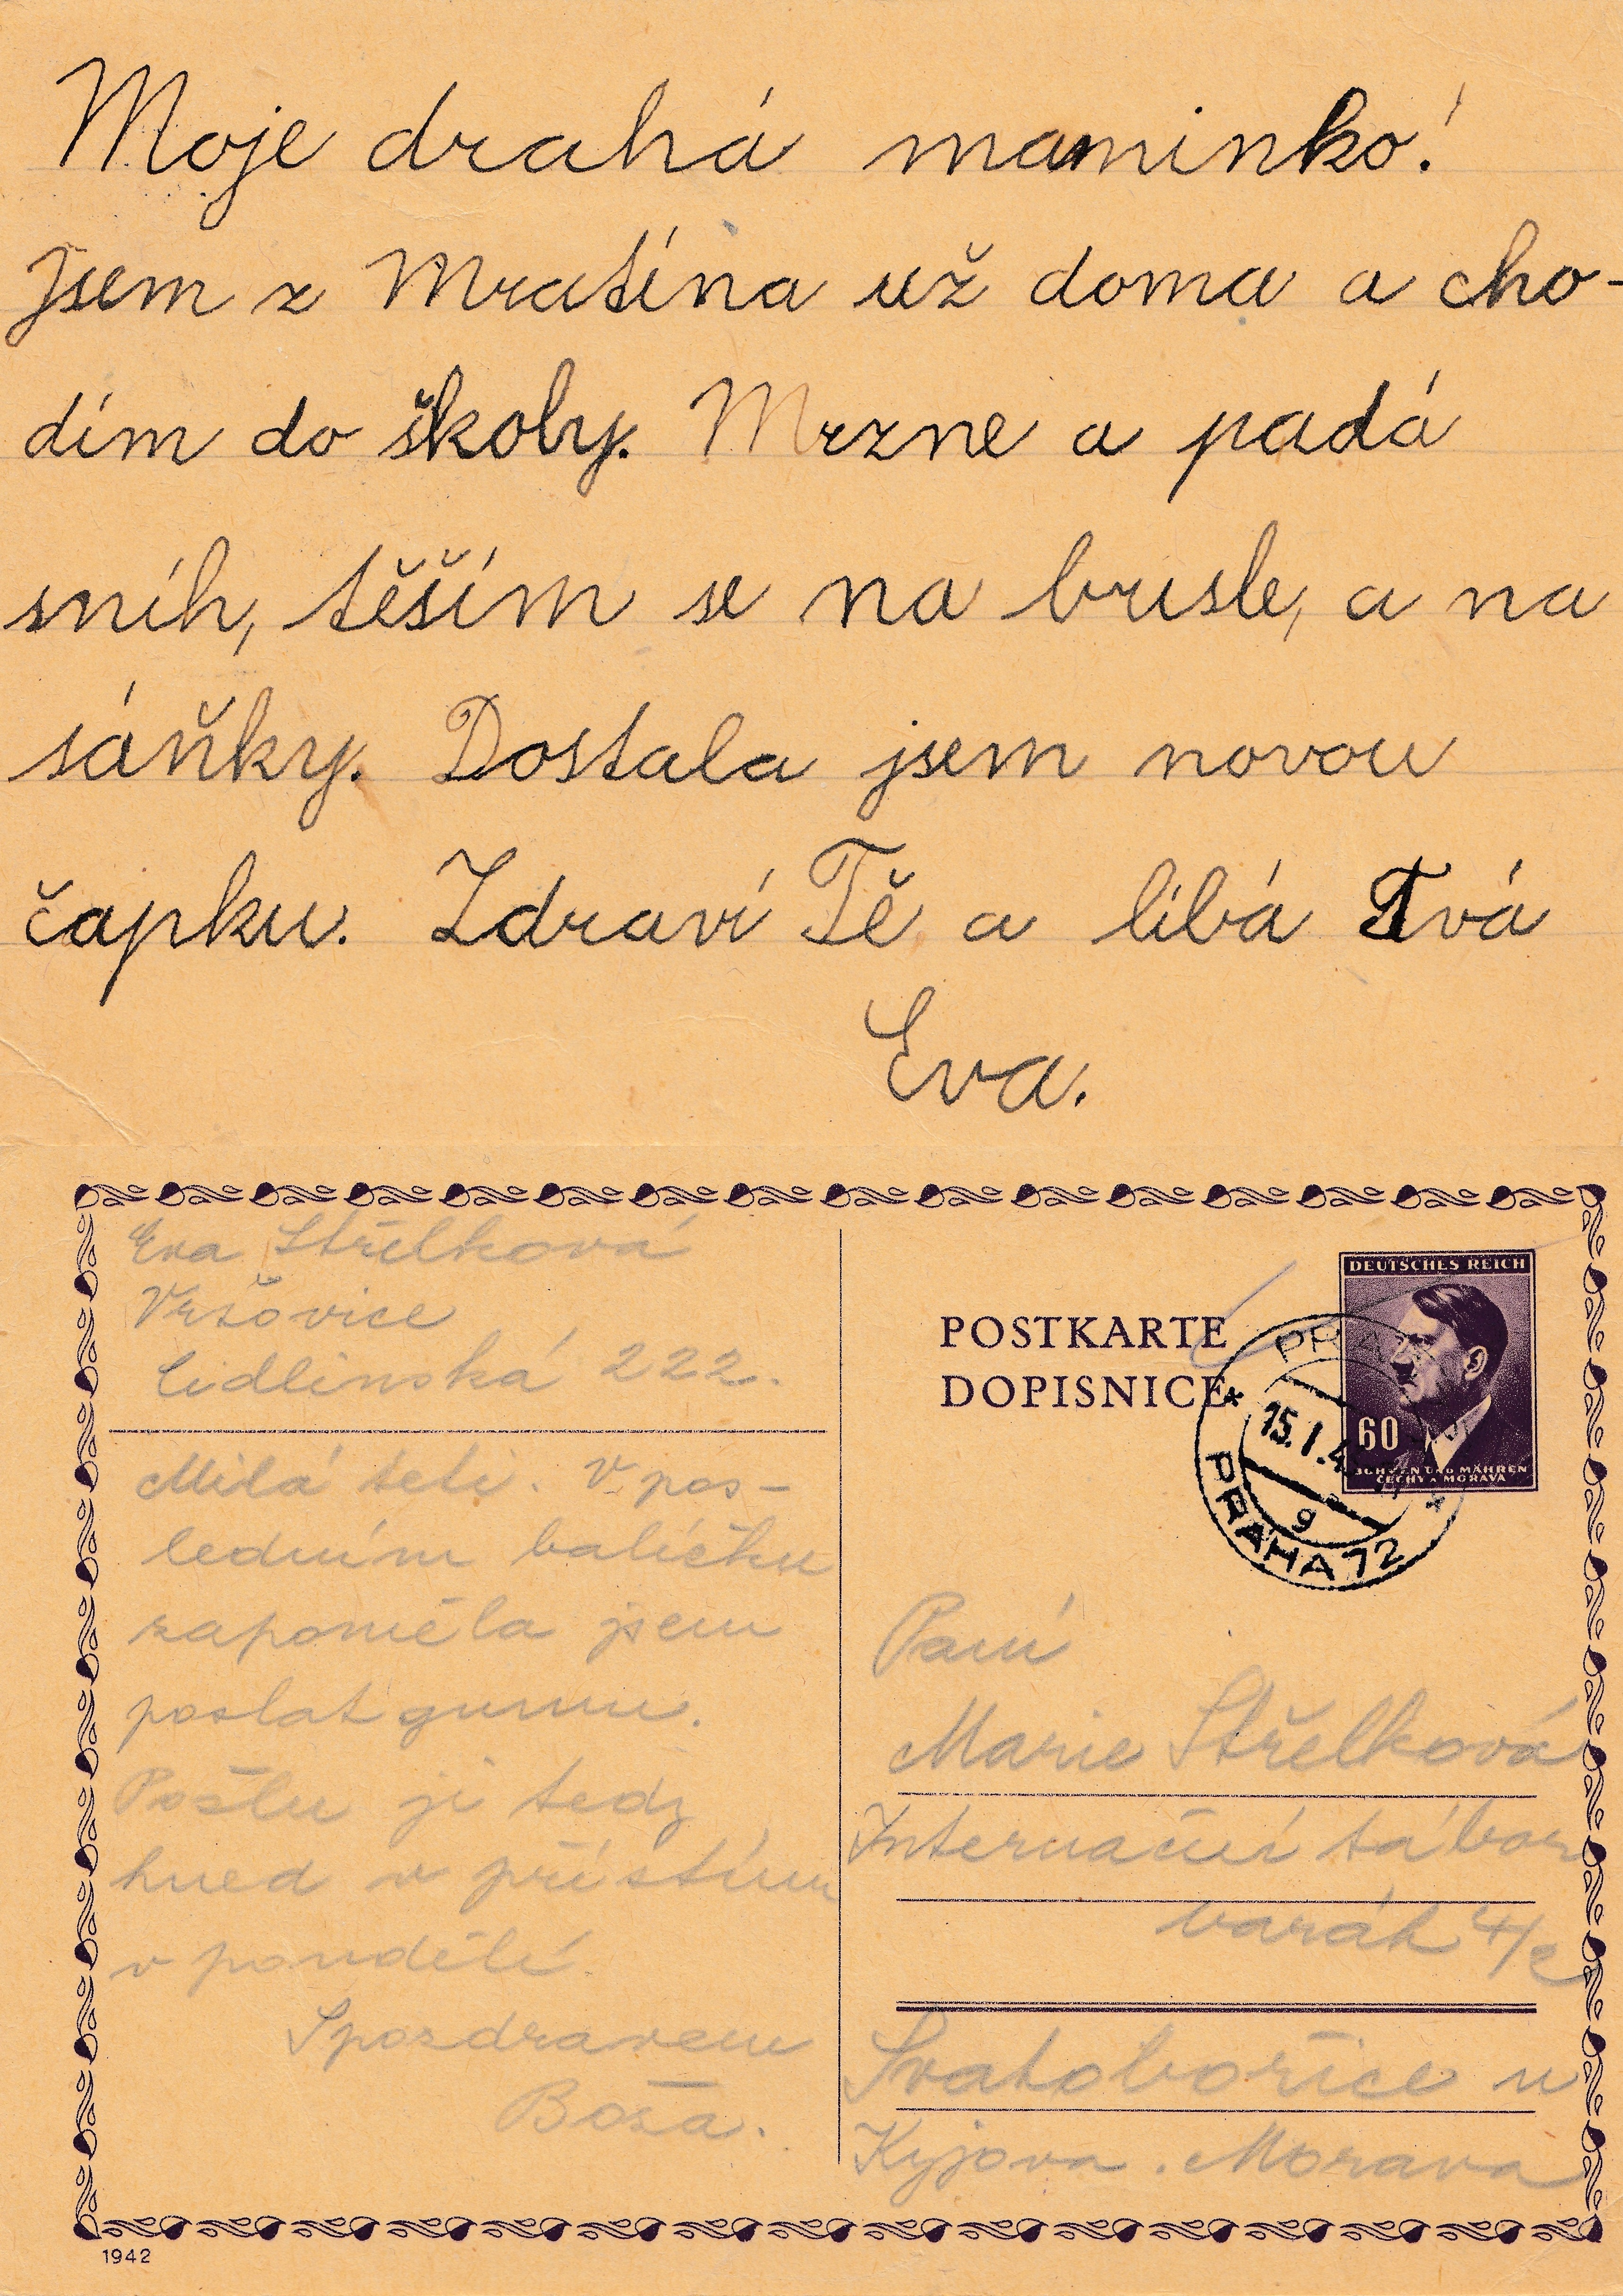 Moje drahá maminko!
jsem z Mratína už doma a cho-
dím do školy. Mrzne a padá
sníh, těším se na brusle, a na
sáňky. Dostala jsem novou
čapku. Zdraví Tě a líbá Tvá
Eva.
Eva Střelková
Vršovice
Cidlinská 222.
Milá teti. V pos-
ledním balíčku
zapoměla jsem
poslat gumu.
Pošlu ji tedy
hned v příštím
v pondělí.
S pozdravem
Boša.
POSTKARTE
DOPISNICE
DEUTSCHES REICH
60
BÖHMEN UND MÄHREN
ČECHY A MORAVA
PRAG
15. I. 4
9
PRAHA 72
Paní
Marie Střelková
Internační tábor
barák 4/2
Svatobořice u
Kyjova. Morava
1942